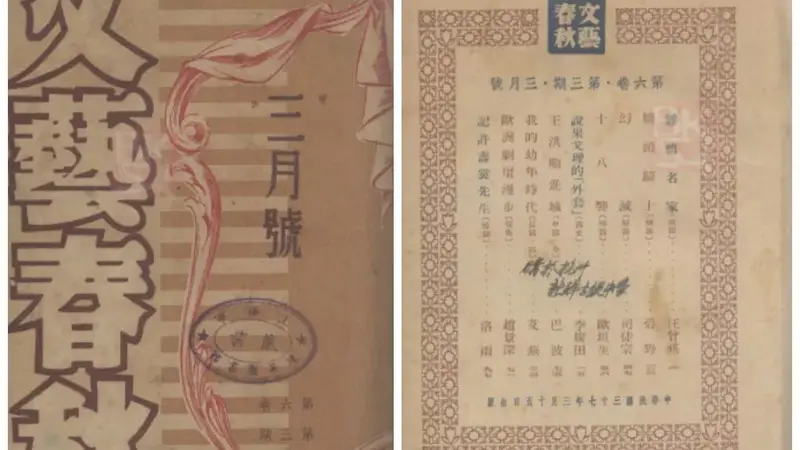 文藝春秋
三月號
第六卷
第三期
文藝春秋
第六卷・第三期・三月號
鷄鴨名家 汪曾祺
幻滅 司徒宗
十八 歐坦生
說果戈理的「外套」 李廣田
王洪順進城 巴波
我的幼年時代 艾蕪
歐洲劇壇漫步 趙景深
記許壽裳先生 洛雨
中華民國三十七年三月十五日出版